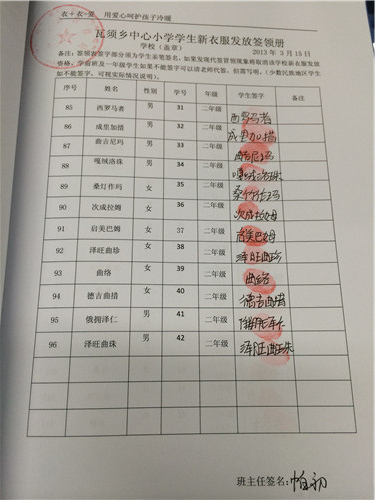 衣+衣=爱 用爱心呵护孩子冷暖
瓦须乡中心小学学生新衣服发放签领册
学校（盖章） 2013 年 3 月 15 日
备注：签领册签字部分须为学生亲笔签名，如果发现代签冒领现象将取消该学校新衣服发放
资格，学前班及一年级学生如果不能签字可以请老师代签，但需写明。（少数民族地区学生
如不能签字，可视实际情况说明）。
序号 姓名 性别 学号 年级 学生签字 备注
85 西罗马者 男 31 二年级 西罗马者
86 成里加措 男 32 二年级 成里加措
87 曲吉尼玛 男 33 二年级 曲吉尼玛
88 嘎绒洛珠 男 34 二年级 嘎绒洛珠
89 桑灯作玛 女 35 二年级 桑灯作玛
90 次成拉姆 女 36 二年级 次成拉姆
91 启美巴姆 女 37 二年级 启美巴姆
92 泽旺曲珍 女 38 二年级 泽旺曲珍
93 曲络 女 39 二年级 曲络
94 德吉曲措 女 40 二年级 德吉曲措
95 俄拥泽仁 男 41 二年级 俄拥泽仁
96 泽旺曲珠 男 42 二年级 泽旺曲珠
班主任签名：帕初